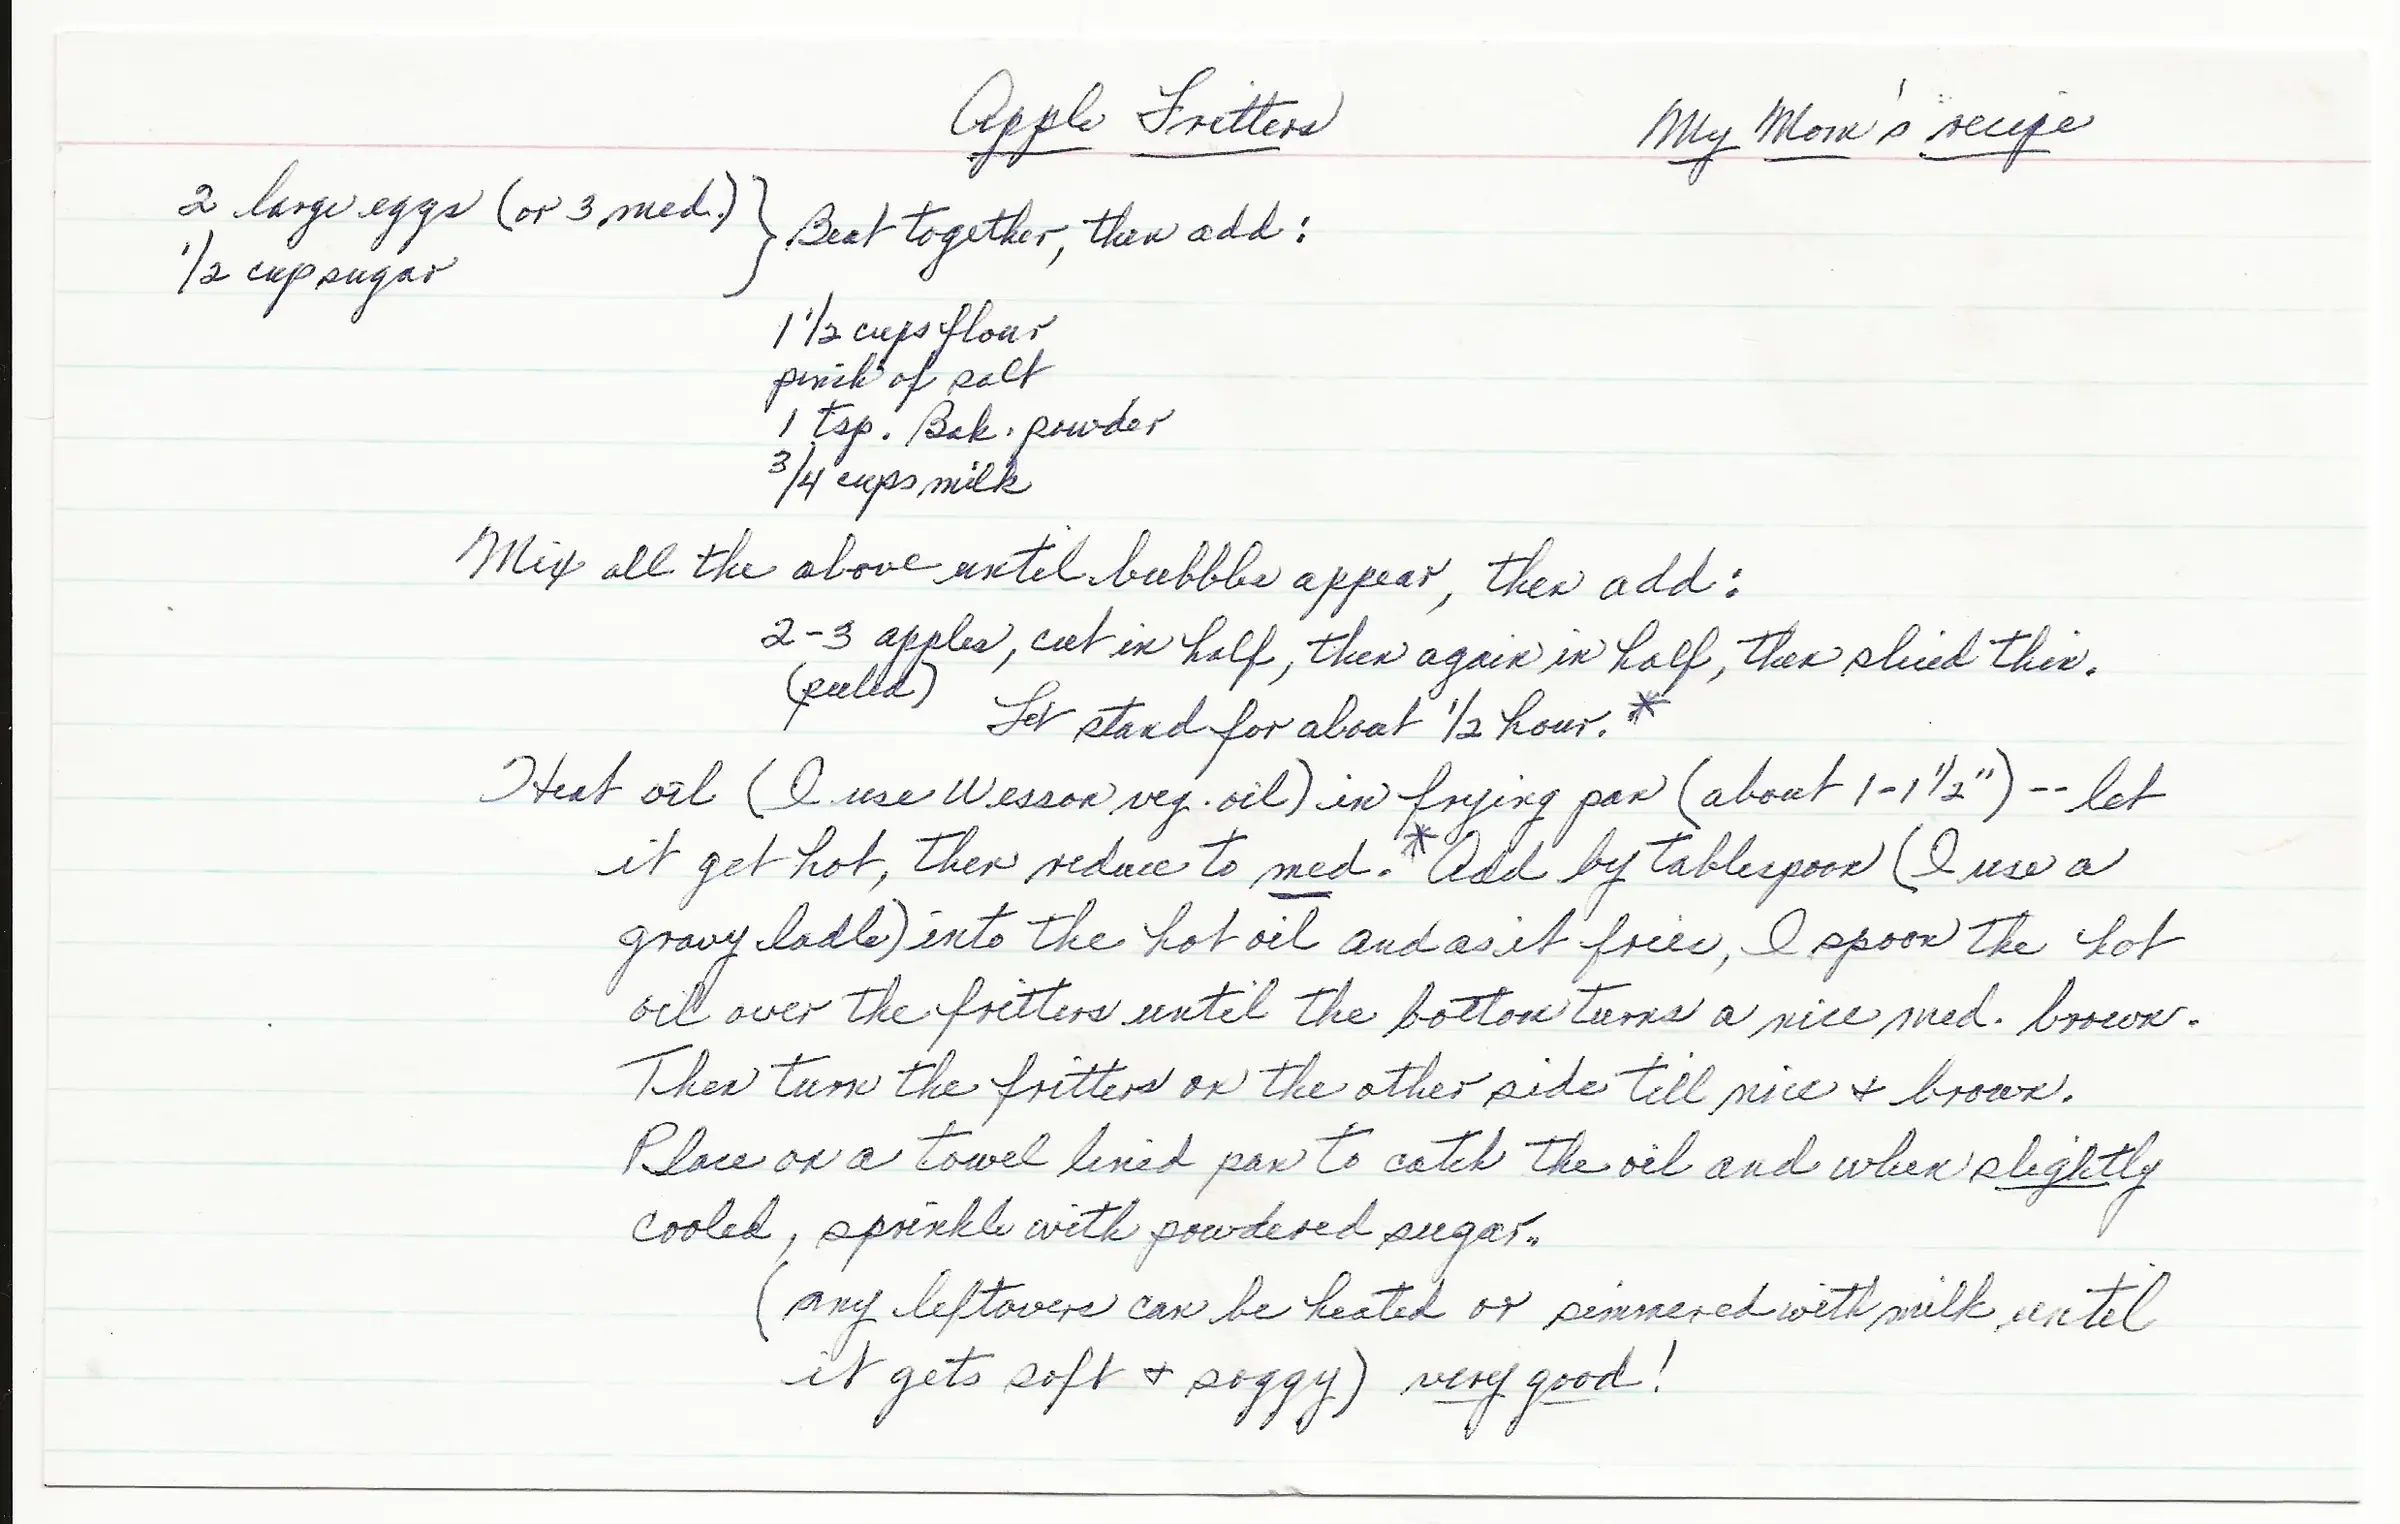 Apple Fritters My Mom's recipe
2 large eggs (or 3 med.) } Beat together, then add:
1/2 cup sugar
1 1/2 cups flour
pinch of salt
1 tsp. Bak. powder
3/4 cups milk
Mix all the above until bubbles appear, then add:
2-3 apples, cut in half, then again in half, then sliced thin.
(peeled) Let stand for about 1/2 hour.*
Heat oil (I use Wesson veg. oil) in frying pan (about 1-1 1/2") -- let
it get hot, then reduce to med.* Add by tablespoon (I use a
gravy ladle) into the hot oil and as it fries, I spoon the hot
oil over the fritters until the bottom turns a nice med. brown.
Then turn the fritters on the other side till nice + brown.
Place on a towel lined pan to catch the oil and when slightly
cooled, sprinkle with powdered sugar.
(any leftovers can be heated or simmered with milk until
it gets soft + soggy) very good!